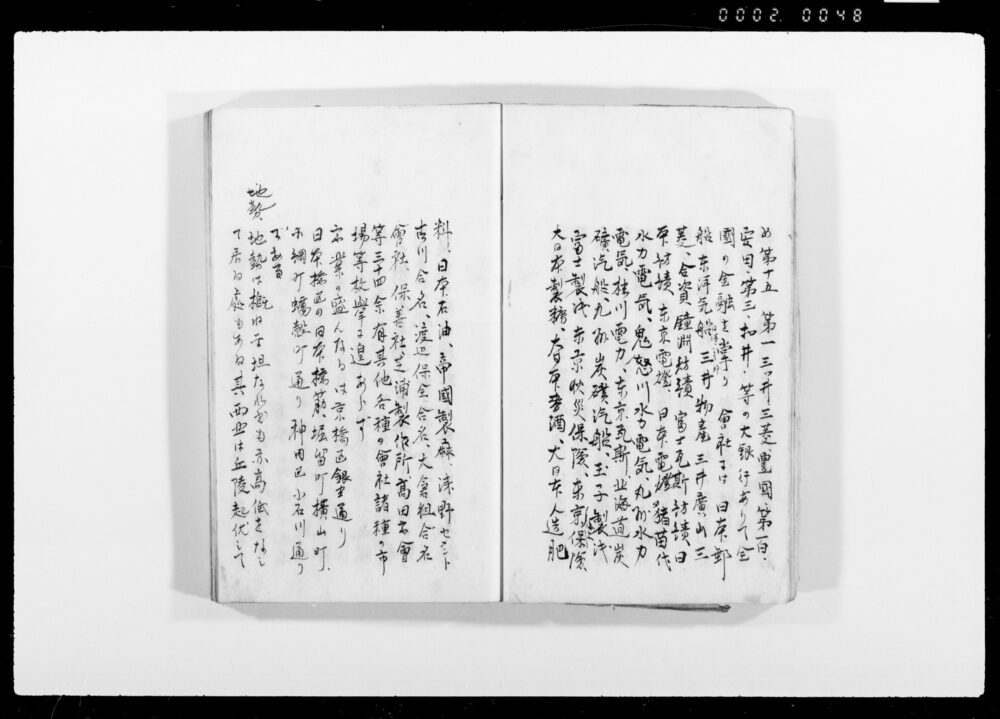 0002 0048
め第十五 第一 三井 三菱 豊國 第百、
安田、第三、村井、等の大銀行ありて全
國の金融を掌り 會社には 日本郵
船 东洋汽船 三井物産 三井廣山 三
菱、合資、鐘淵紡績 富士瓦斯紡績、日
本紡績 东京電燈、日本電燈 猪苗代
水力電気、鬼怒川水力電気 丸水力
電気、桂川電力、东京瓦斯 北海道炭
礦汽船、九州炭礦汽船、王子製紙
富士製紙 东京火災保険、东京保険
大日本製糖、大日本麦酒、大日本人造肥
料、日本石油、帝國製麻、浅野セメント
古川合名、渡辺保全合名、大倉組合名
會社、保善社 芝浦製作所 高田商會
等三十四余有 其他各種の會社 諸種の市
場等枚擧に遑あらず
商業の盛んなるは京橋区銀坐通り
日本橋区の日本橋筋 堀留町 横山町、
小網町 蠣殻町通り 神田区 小石川通り
である
地勢
地勢は概ね平坦なれども亦高低をなし
て居る處もある 其西北は丘陵起伏して